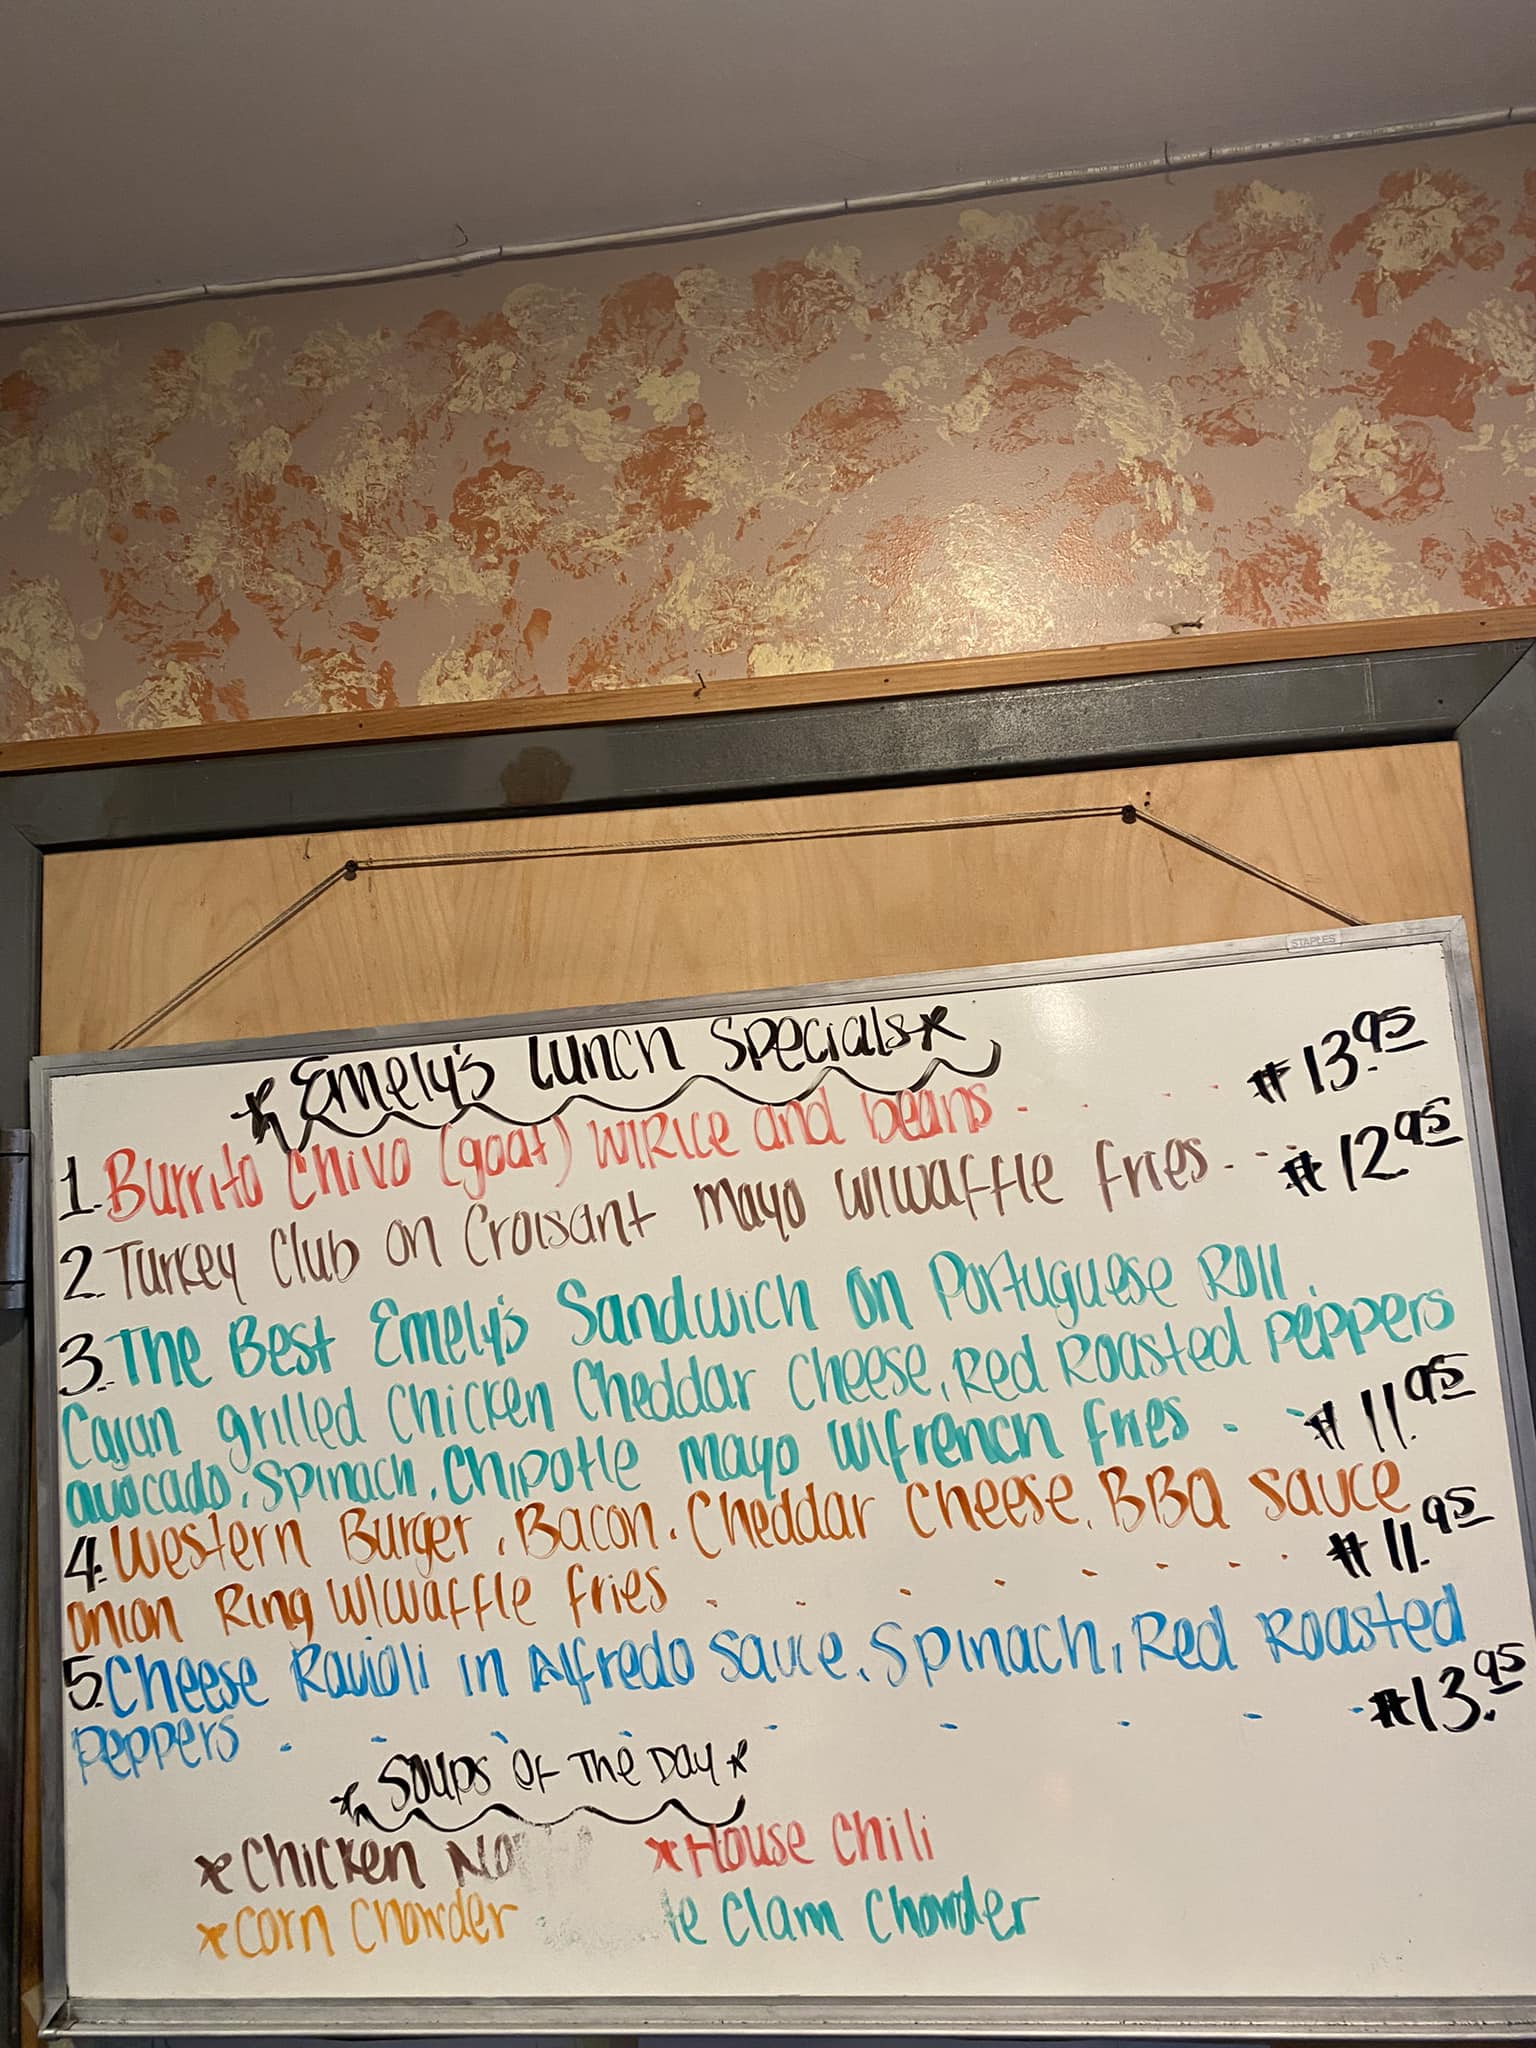 STAPLES
*Emely's Lunch Specials*
1. Burrito Chivo (goat) w/Rice and beans . . . . $13.95
2. Turkey Club on Croisant mayo w/waffle fries . . $12.95
3. The Best Emely's Sandwich on Portuguese Roll,
Cajun grilled Chicken Cheddar Cheese, Red Roasted peppers
avocado, Spinach, Chipotle mayo w/french fries . . $11.95
4. Western Burger, Bacon, Cheddar Cheese, BBQ sauce
onion Ring w/waffle fries . . . . . . . $11.95
5. Cheese Ravioli in Alfredo sauce, Spinach, Red Roasted
peppers . . . . . . . . $13.95
*Soups Of The Day*
*Chicken *House Chili
*Corn Chowder Clam Chowder